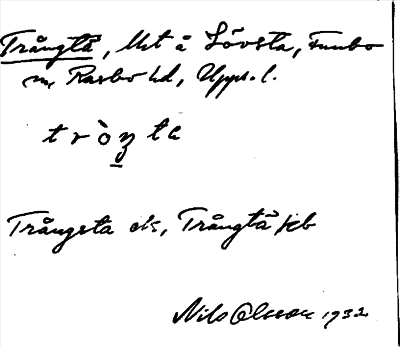 Trångtå, Uet å Lövsta, Funbo
sn, Rasbo hd, Upps. l.
tròŋta
Trångsta ek, Trångtå jeb
Nils Olsson 1932